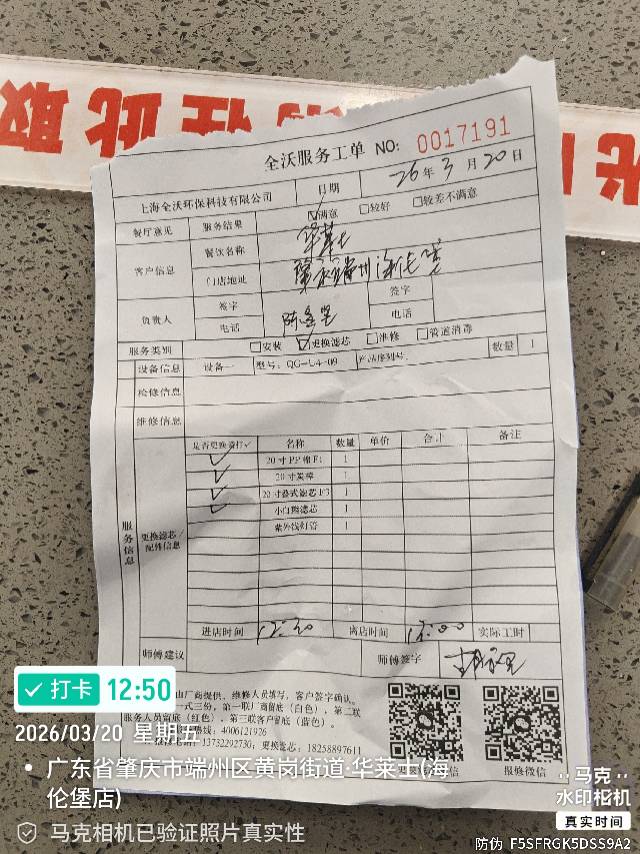 全沃服务工单 NO: 0017191
上海全沃环保科技有限公司 日期 26年3月20日
餐厅意见 服务结果 ☑满意 □较好 □较差不满意
客户信息 餐饮名称 华莱士
门店地址 肇庆端州海伦堡
负责人 签字 签字
电话 电话
服务类别 □安装 ☑更换滤芯 □维修 □管道消毒
设备信息 设备一 型号: QG-U4-09 产品序列号: 数量 1
检修信息
维修信息
服务信息 更换滤芯/配件信息
是否更换请打✓ 名称 数量 单价 合计 备注
✓ 20寸PP棉F1 1
✓ 20寸炭棒 1
✓ 20寸叠式滤芯F3 1
✓ 小白熊滤芯 1
紫外线灯管 1
进店时间 12:30 离店时间 13:00 实际工时
师傅建议 师傅签字
由厂商提供、维修人员填写, 客户签字确认。
一式三份, 第一联厂商留底(白色), 第二联
服务人员留底(红色), 第三联客户留底(蓝色)。
热线: 4006121976
13752292730; 更换滤芯: 18258897611
更换滤芯微信 报修微信
打卡 12:50
2026/03/20 星期五
广东省肇庆市端州区黄岗街道·华莱士(海
伦堡店)
马克相机已验证照片真实性
马克
水印相机
真实时间
防伪 F5SFRGK5DSS9A2